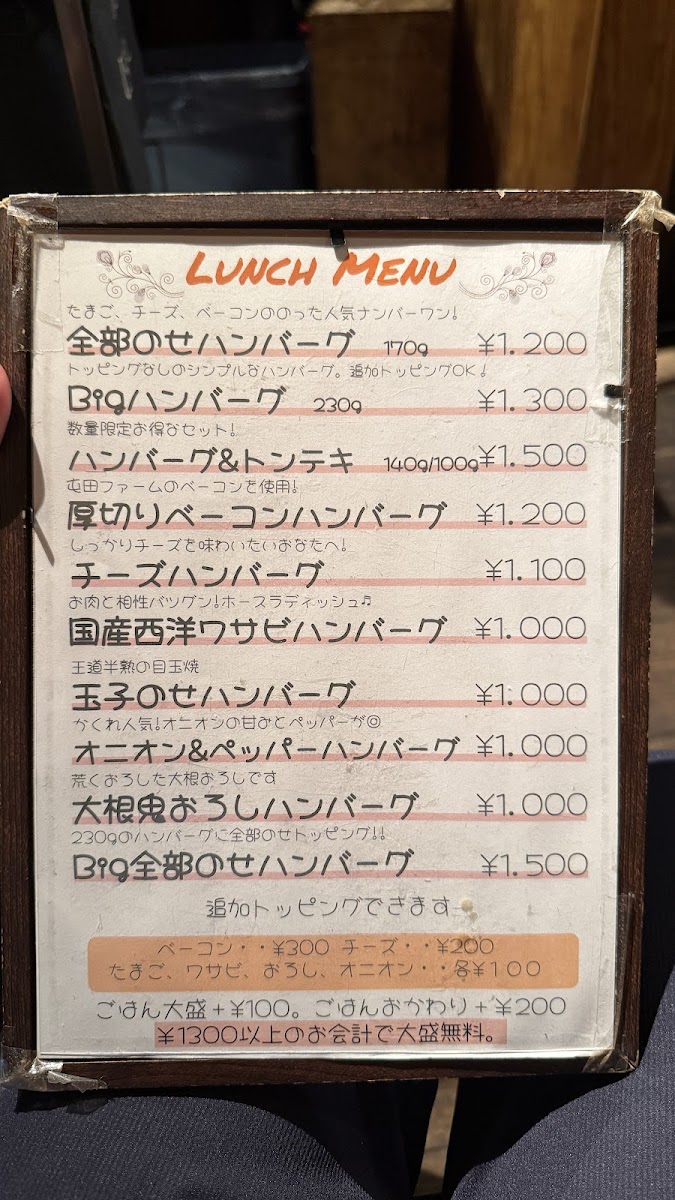 LUNCH MENU
たまご、チーズ、ベーコンののった人気ナンバーワン!
全部のせハンバーグ 170g ¥1.200
トッピングなしのシンプルなハンバーグ。追加トッピングOK!
Bigハンバーグ 230g ¥1.300
数量限定お得なセット!
ハンバーグ&トンテキ 140g/100g ¥1.500
屯田ファームのベーコンを使用!
厚切りベーコンハンバーグ ¥1.200
しっかりチーズを味わいたいあなたへ!
チーズハンバーグ ¥1.100
お肉と相性バツグン!ホースラディッシュ♫
国産西洋ワサビハンバーグ ¥1.000
王道半熟の目玉焼
玉子のせハンバーグ ¥1.000
かくれ人気!オニオンの甘みとペッパーが◎
オニオン&ペッパーハンバーグ ¥1.000
荒くおろした大根おろしです
大根鬼おろしハンバーグ ¥1.000
230gのハンバーグに全部のせトッピング!!
Big全部のせハンバーグ ¥1.500
追加トッピングできます
ベーコン・・¥300 チーズ・・¥200
たまご、ワサビ、おろし、オニオン・・各¥100
ごはん大盛+¥100。ごはんおかわり+¥200
¥1300以上のお会計で大盛無料。